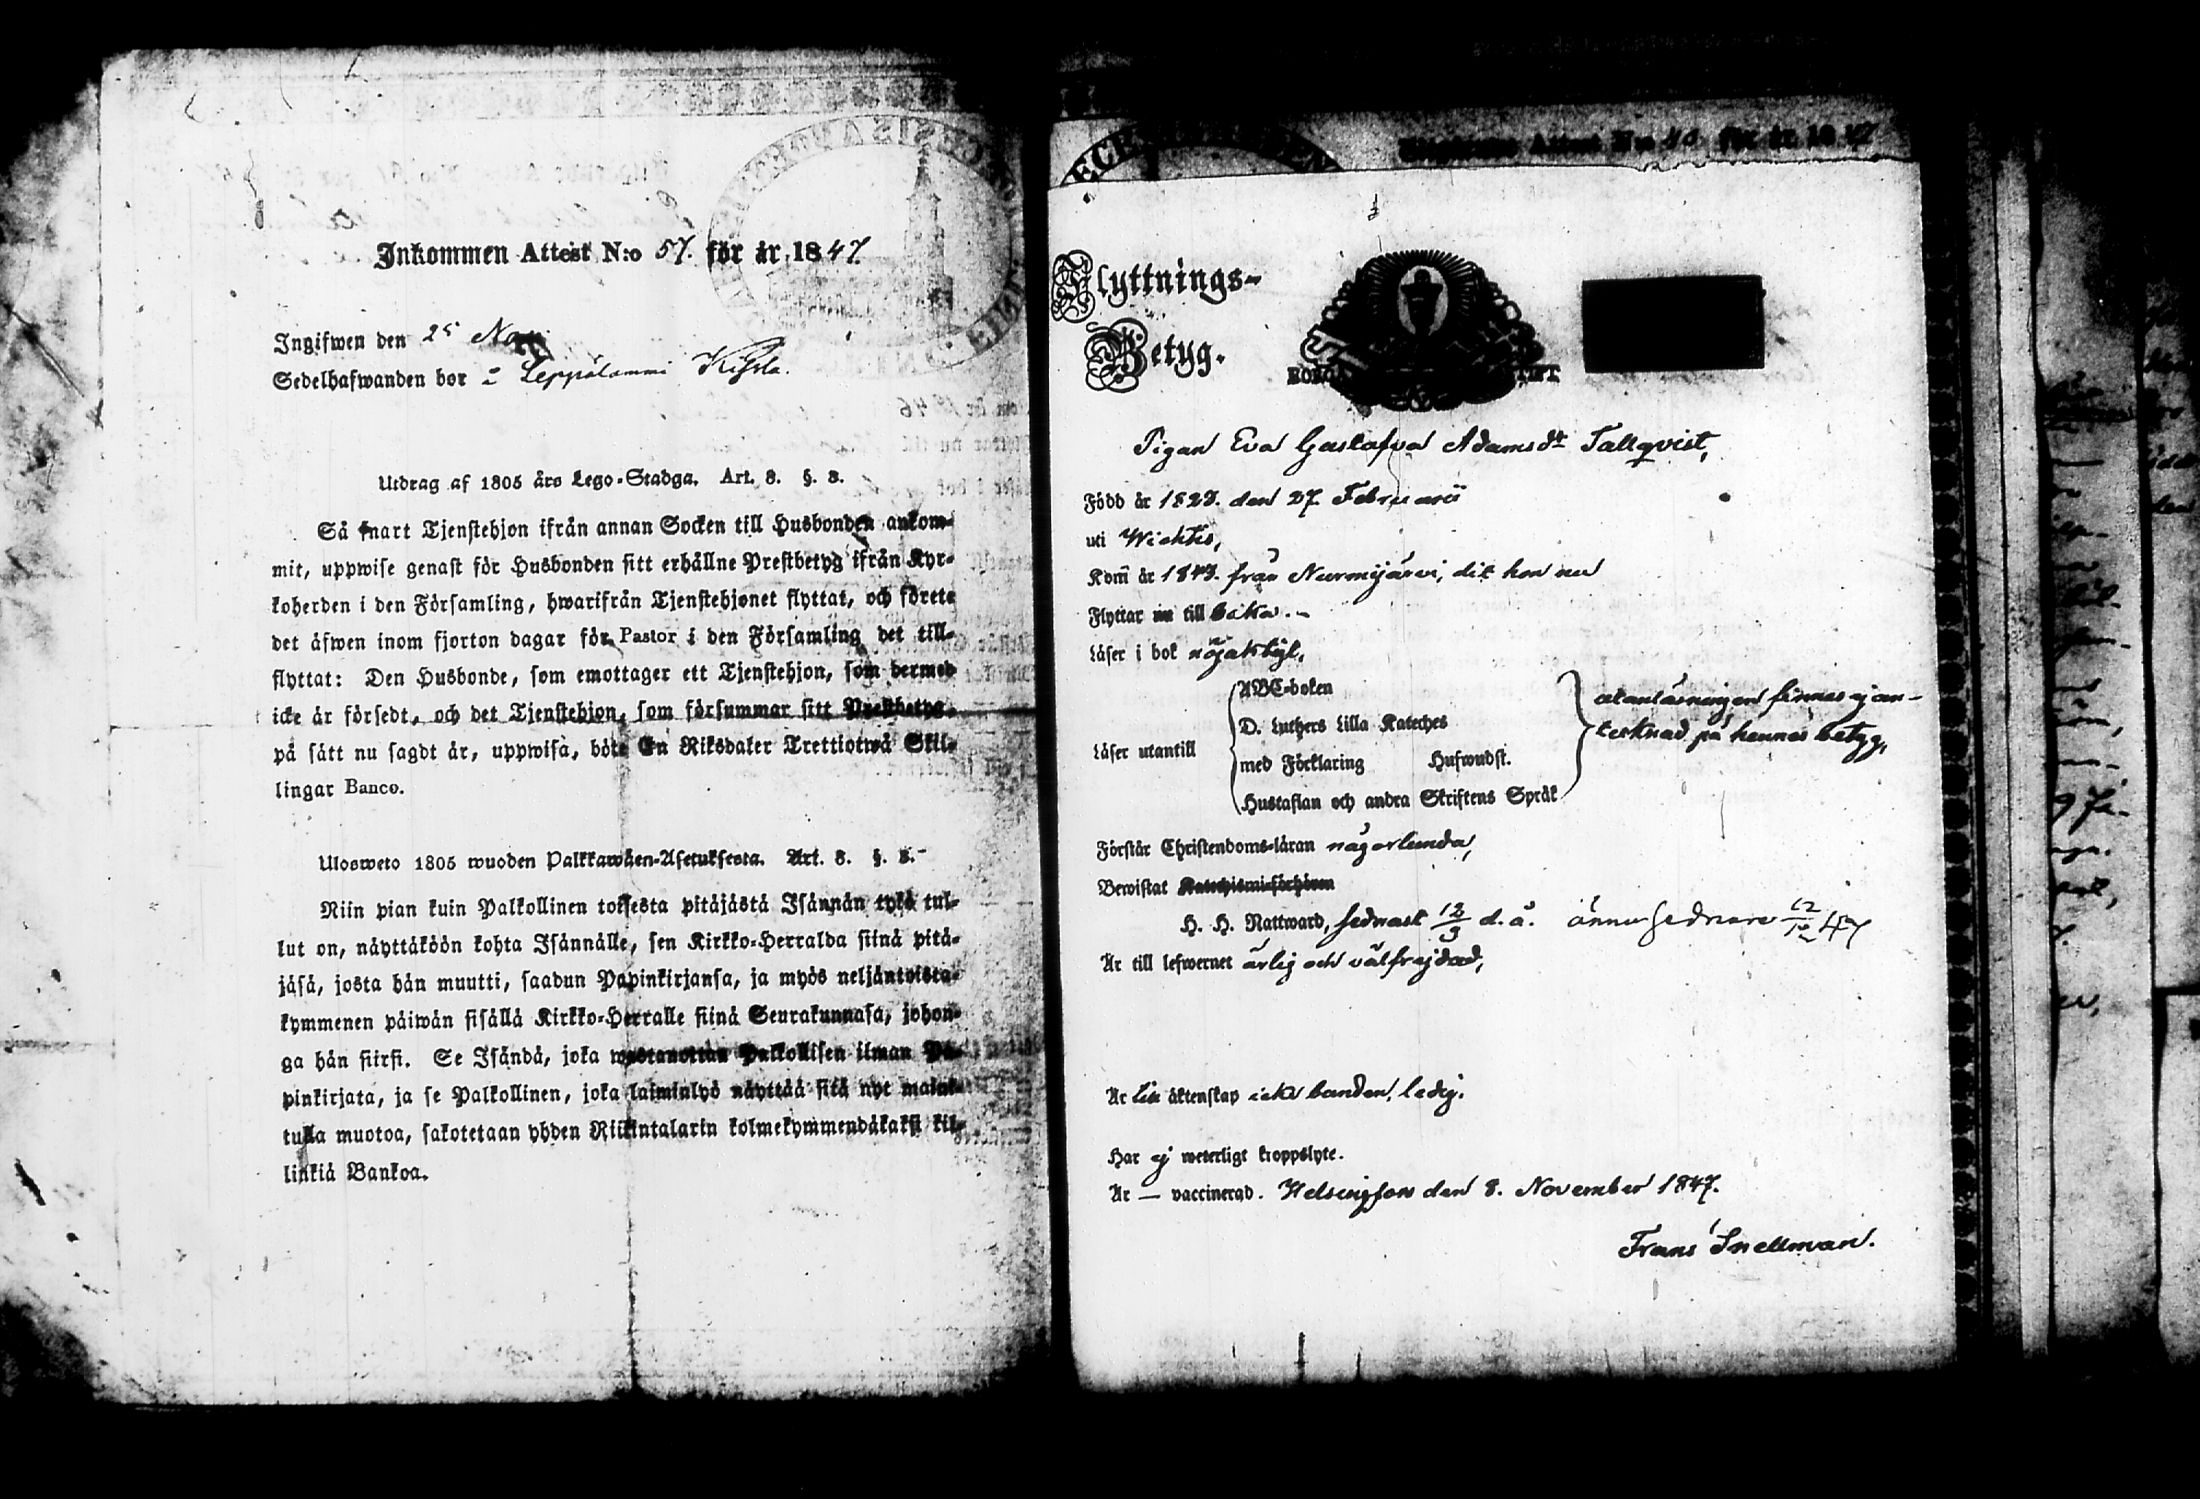 Inkommen Attest N:o 57. för år 1847.
Ingifwen den 25 Nov.
Sedelhafwanden bor i Leppälammi
Utdrag af 1805 års Lego-Stadga. Art. 8. §. 3.
Så snart Tjenstehjon ifrån annan Socken till Husbonden ankom-
mit, uppwise genast för Husbonden sitt erhållne Prestbetyg ifrån Kyr-
koherden i den Församling, hwarifrån Tjenstehjonet flyttat, och förete
det äfwen inom fjorton dagar för Pastor i den Församling det till-
flyttat: Den Husbonde, som emottager ett Tjenstehjon, som dermed
icke är försedt, och det Tjenstehjon, som försummar sitt Prestbetyg,
på sätt nu sagdt är, uppwisa, böte En Riksdaler Trettiotwå Skil-
lingar Banco.
Ulosweto 1805 wuoden Palkkawäen-Asetuksesta. Art. 8. §. 3.
Niin pian kuin Palkollinen toisesta pitäjästä Isännän tykö tul-
lut on, näyttäköön kohta Isännälle, sen Kirkko-Herralda siinä pitä-
jäsä, josta hän muutti, saadun Papinkirjansa, ja myös neljäntoista-
kymmenen päiwän sisällä Kirkko-Herralle siinä Seurakunnasa, johon-
ga hän siirsi. Se Isändä, joka wastanottaa Palkollisen ilman Pa-
pinkirjata, ja se Palkollinen, joka laiminlyö näyttää sitä nyt mainit-
tulla muotoa, sakotetaan yhden Riikintalarin kolmekymmendäkaksi kil-
linkiä Bankoa.
Attest N:o för år 1847
Flyttnings-
Betyg.
Pigan Eva Gustafva Adamsdr Tallqvist,
Född år 1827. den 27. Februarii
uti Wichtis,
Kom år 1847. från Nurmijärvi, dit hon nu
Flyttar nu till baka.-
Läser i bok nöjaktigt,
Läser utantill
ABC-boken
D. Luthers Lilla Kateches
med Förklaring Hufwudst.
Hustaflan och andra Skriftens Språk
utanläsningen finnes ej an-
tecknad på hennes betyg,
Förstår Christendoms-läran någorlunda,
Bewistat Katechismi-förhören
H. H. Nattward, sednast 12/9 d. å. ännu sednare 12/12 47
Är till lefwernet ärlig och välfrejdad,
Är till äktenskap icke bunden, ledig.
Har ej weterligt kroppslyte.
Är — vaccinerad. Helsingfors den 8. November 1847.
Frans Snellman.